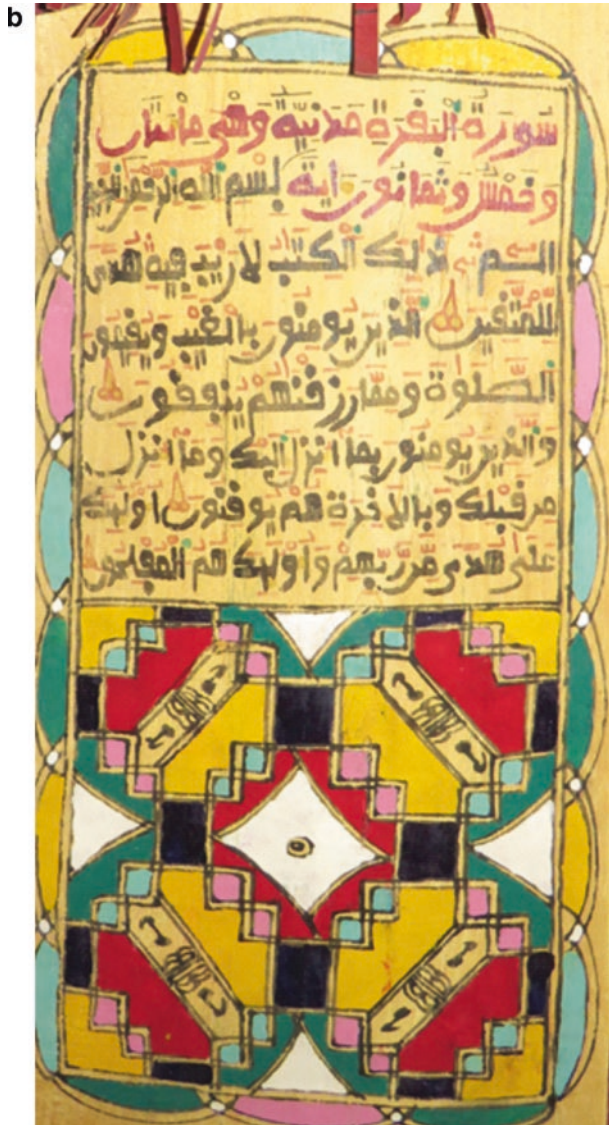 b
سورة البقرة مدنية وهي مائتان
وخمس وثمانون اية بسم الله الرحمن الرحيم
الم ذلك الكتب لا ريب فيه هدى
للمتقين الذين يومنون بالغيب ويقيمون
الصلوة ومما رزقنهم ينفقون
والذين يومنون بما انزل اليك وما انزل
من قبلك وبالاخرة هم يوقنون اوليك
على هدى من ربهم واوليك هم المفلحون